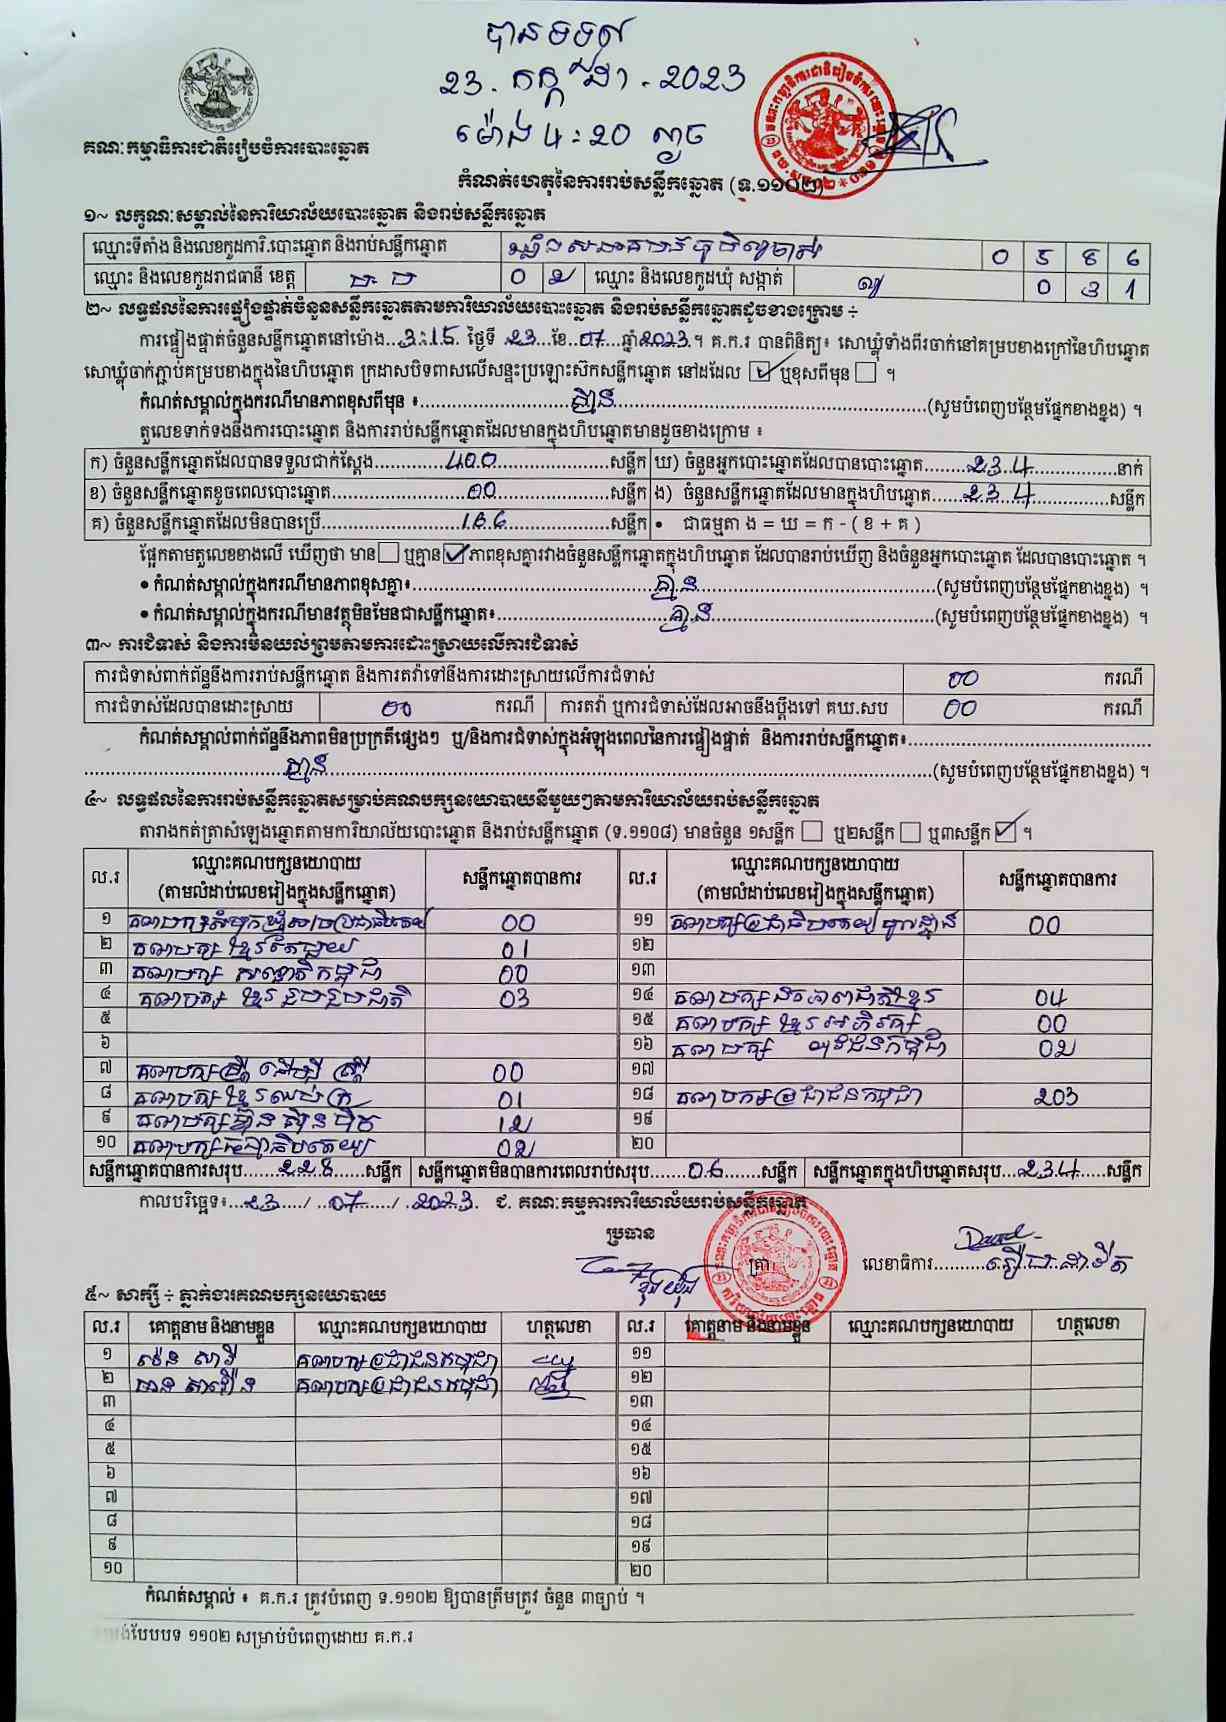 បានទទួល
23. កក្កដា. 2023
ម៉ោង 4:20 ល្ងាច
គណៈកម្មាធិការជាតិរៀបចំការបោះឆ្នោត
កំណត់ហេតុនៃការរាប់សន្លឹកឆ្នោត (ទ.១១០២)
១~ លក្ខណៈសម្គាល់នៃការិយាល័យបោះឆ្នោត និងរាប់សន្លឹកឆ្នោត
ឈ្មោះទីតាំង និងលេខកូដការិ.បោះឆ្នោត និងរាប់សន្លឹកឆ្នោត 0 5 8 6
ឈ្មោះ និងលេខកូដរាជធានី ខេត្ត ប.ប 0 2 ឈ្មោះ និងលេខកូដឃុំ សង្កាត់ 0 3 1
២~ លទ្ធផលនៃការផ្ទៀងផ្ទាត់ចំនួនសន្លឹកឆ្នោតតាមការិយាល័យបោះឆ្នោត និងរាប់សន្លឹកឆ្នោតដូចខាងក្រោម ÷
ការផ្ទៀងផ្ទាត់ចំនួនសន្លឹកឆ្នោតនៅម៉ោង...3:15. ថ្ងៃទី .23...ខែ..07...ឆ្នាំ2023.។ គ.ក.រ បានពិនិត្យ៖ សោឃ្លុំទាំងពីរចាក់នៅគម្របខាងក្រៅនៃហិបឆ្នោត
សោឃ្លុំចាក់ភ្ជាប់គម្របខាងក្នុងនៃហិបឆ្នោត ក្រដាសបិទពាសលើសន្ទះប្រឡោះស៊កសន្លឹកឆ្នោត នៅដដែល ☑ ឬខុសពីមុន ☐ ។
កំណត់សម្គាល់ក្នុងករណីមានភាពខុសពីមុន ៖...គ្មាន...(សូមបំពេញបន្ថែមផ្នែកខាងខ្នង) ។
តួលេខទាក់ទងនឹងការបោះឆ្នោត និងការរាប់សន្លឹកឆ្នោតដែលមានក្នុងហិបឆ្នោតមានដូចខាងក្រោម ៖
ក) ចំនួនសន្លឹកឆ្នោតដែលបានទទួលជាក់ស្តែង...400...សន្លឹក ឃ) ចំនួនអ្នកបោះឆ្នោតដែលបានបោះឆ្នោត...234...នាក់
ខ) ចំនួនសន្លឹកឆ្នោតខូចពេលបោះឆ្នោត...00...សន្លឹក ង) ចំនួនសន្លឹកឆ្នោតដែលមានក្នុងហិបឆ្នោត...234...សន្លឹក
គ) ចំនួនសន្លឹកឆ្នោតដែលមិនបានប្រើ...166...សន្លឹក • ជាធម្មតា ង = ឃ = ក - ( ខ + គ )
ផ្អែកតាមតួលេខខាងលើ ឃើញថា មាន ☐ ឬគ្មាន ☑ ភាពខុសគ្នារវាងចំនួនសន្លឹកឆ្នោតក្នុងហិបឆ្នោត ដែលបានរាប់ឃើញ និងចំនួនអ្នកបោះឆ្នោត ដែលបានបោះឆ្នោត ។
• កំណត់សម្គាល់ក្នុងករណីមានភាពខុសគ្នា៖...គ្មាន...(សូមបំពេញបន្ថែមផ្នែកខាងខ្នង) ។
• កំណត់សម្គាល់ក្នុងករណីមានវត្ថុមិនមែនជាសន្លឹកឆ្នោត៖...គ្មាន...(សូមបំពេញបន្ថែមផ្នែកខាងខ្នង) ។
៣~ ការជំទាស់ និងការមិនយល់ព្រមតាមការដោះស្រាយលើការជំទាស់
ការជំទាស់ពាក់ព័ន្ធនឹងការរាប់សន្លឹកឆ្នោត និងការតវ៉ាទៅនឹងការដោះស្រាយលើការជំទាស់ 00 ករណី
ការជំទាស់ដែលបានដោះស្រាយ 00 ករណី ការតវ៉ា ឬការជំទាស់ដែលអាចនឹងប្តឹងទៅ គឃ.សប 00 ករណី
កំណត់សម្គាល់ពាក់ព័ន្ធនឹងភាពមិនប្រក្រតីផ្សេងៗ ឬ/និងការជំទាស់ក្នុងអំឡុងពេលនៃការផ្ទៀងផ្ទាត់ និងការរាប់សន្លឹកឆ្នោត៖...
...គ្មាន...(សូមបំពេញបន្ថែមផ្នែកខាងខ្នង) ។
៤~ លទ្ធផលនៃការរាប់សន្លឹកឆ្នោតសម្រាប់គណបក្សនយោបាយនីមួយៗតាមការិយាល័យរាប់សន្លឹកឆ្នោត
តារាងកត់ត្រាសំឡេងឆ្នោតតាមការិយាល័យបោះឆ្នោត និងរាប់សន្លឹកឆ្នោត (ទ.១១០៨) មានចំនួន ១សន្លឹក ☐ ឬ២សន្លឹក ☐ ឬ៣សន្លឹក ☑ ។
ល.រ ឈ្មោះគណបក្សនយោបាយ សន្លឹកឆ្នោតបានការ ល.រ ឈ្មោះគណបក្សនយោបាយ សន្លឹកឆ្នោតបានការ
(តាមលំដាប់លេខរៀងក្នុងសន្លឹកឆ្នោត) (តាមលំដាប់លេខរៀងក្នុងសន្លឹកឆ្នោត)
១ គណបក្សសំបុកឃ្មុំសង្គមប្រជាធិបតេយ្យ 00 ១១ គណបក្សប្រជាធិបតេយ្យមូលដ្ឋាន 00
២ គណបក្ស ខ្មែរតែមួយ 01 ១២
៣ គណបក្ស សញ្ជាតិកម្ពុជា 00 ១៣
៤ គណបក្ស ខ្មែរ រួបរួមជាតិ 03 ១៤ គណបក្សឯកភាពជាតិខ្មែរ 04
៥ ១៥ គណបក្ស ខ្មែរ អភិរក្ស 00
៦ ១៦ គណបក្ស យុវជនកម្ពុជា 02
៧ គណបក្សស្ត្រី ដើម្បី ស្ត្រី 00 ១៧
៨ គណបក្សខ្មែរឈប់ក្រ 01 ១៨ គណបក្សប្រជាជនកម្ពុជា 203
៩ គណបក្សហ្វ៊ុនស៊ិនប៉ិច 12 ១៩
១០ គណបក្សធម្មាធិបតេយ្យ 02 ២០
សន្លឹកឆ្នោតបានការសរុប...228...សន្លឹក សន្លឹកឆ្នោតមិនបានការពេលរាប់សរុប...06...សន្លឹក សន្លឹកឆ្នោតក្នុងហិបឆ្នោតសរុប...234...សន្លឹក
កាលបរិច្ឆេទ៖...23.../...07.../..2023. ជ. គណៈកម្មការការិយាល័យរាប់សន្លឹកឆ្នោត
ប្រធាន
ត្រា លេខាធិការ...
៥~ សាក្សី ÷ ភ្នាក់ងារគណបក្សនយោបាយ
ល.រ គោត្តនាម និងនាមខ្លួន ឈ្មោះគណបក្សនយោបាយ ហត្ថលេខា ល.រ គោត្តនាម និងនាមខ្លួន ឈ្មោះគណបក្សនយោបាយ ហត្ថលេខា
១ គណបក្សប្រជាជនកម្ពុជា ១១
២ គណបក្សប្រជាជនកម្ពុជា ១២
៣ ១៣
៤ ១៤
៥ ១៥
៦ ១៦
៧ ១៧
៨ ១៨
៩ ១៩
១០ ២០
កំណត់សម្គាល់ ៖ គ.ក.រ ត្រូវបំពេញ ទ.១១០២ ឱ្យបានត្រឹមត្រូវ ចំនួន ៣ច្បាប់ ។
បែបបទ ១១០២ សម្រាប់បំពេញដោយ គ.ក.រ